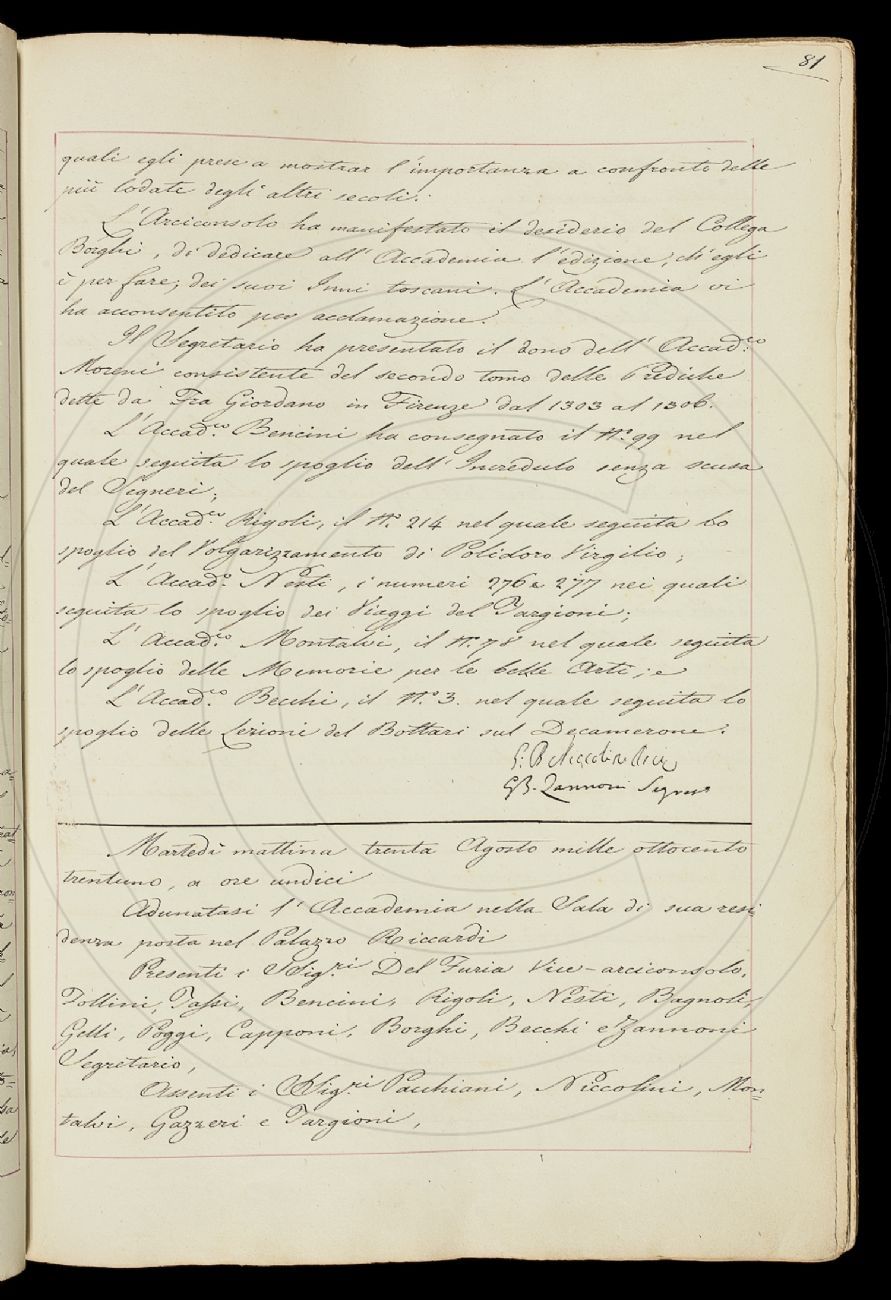 81
quali egli prese a mostrar l'importanza a confronto delle
più lodate degli altri secoli.
L'Arciconsolo ha manifestato il desiderio del Collega
Borghi, di dedicare all'Accademia l'edizione, ch'egli
è per fare, dei suoi Inni toscani. L'Accademia vi
ha acconsentito per acclamazione.
Il Segretario ha presentato il dono dell'Accad.co
Moreni consistente del secondo tomo delle Prediche
dette da Fra Giordano in Firenze dal 1303 al 1306.
L'Accad.co Bencini ha consegnato il N.o 99 nel
quale seguita lo spoglio dell'Incredulo senza scusa
del Segneri;
L'Accad.co Rigoli, il N.o 214 nel quale seguita lo
spoglio del Volgarizzamento di Polidoro Virgilio;
L'Accad.o Nesti, i numeri 276 e 277 nei quali
seguita lo spoglio dei Viaggi del Targioni;
L'Accad.co Montalvi, il N.o 78 nel quale seguita
lo spoglio delle Memorie per le belle Arti; e
L'Accad.co Becchi, il N.o 3. nel quale seguita lo
spoglio delle Lezioni del Bottari sul Decamerone.
G. B. Niccolini
G B. Zannoni Segret.o
Martedì mattina trenta Agosto mille ottocento
trentuno, a ore undici
Adunatasi l'Accademia nella Sala di sua resi
denza posta nel Palazzo Riccardi
Presenti i Sig.ri Del Furia Vice-arciconsolo,
Follini, Tassi, Bencini, Rigoli, Nesti, Bagnoli,
Gelli, Poggi, Capponi, Borghi, Becchi e Zannoni
Segretario,
Assenti i Sig.ri Pacchiani, Niccolini, Mon=
talvi, Gazzeri e Targioni,